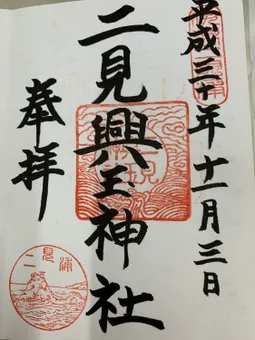 平成三十年十一月三日
二見興玉神社
奉拝
二見浦